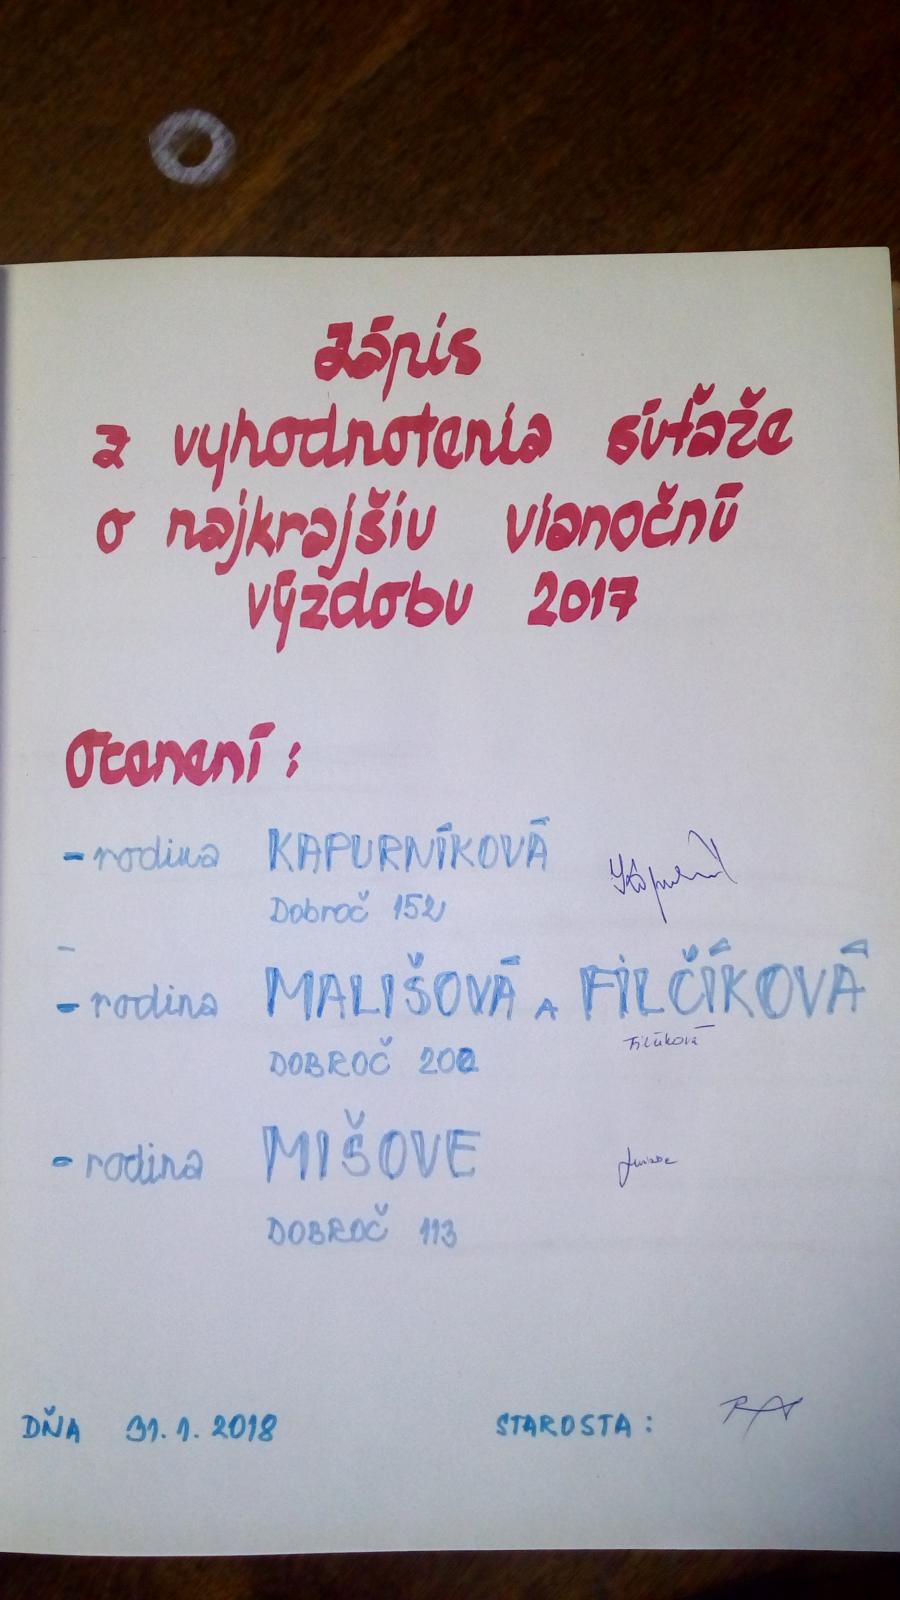 Zápis
z vyhodnotenia súťaže
o najkrajšiu vianočnú
výzdobu 2017
Ocenení:
- rodina KAPURNÍKOVÁ
Dobroč 152
-
- rodina MALIŠOVÁ A FILČÍKOVÁ
Filčíková
DOBROČ 202
- rodina MIŠOVE
DOBROČ 113
DŇA 31.1.2018 STAROSTA: